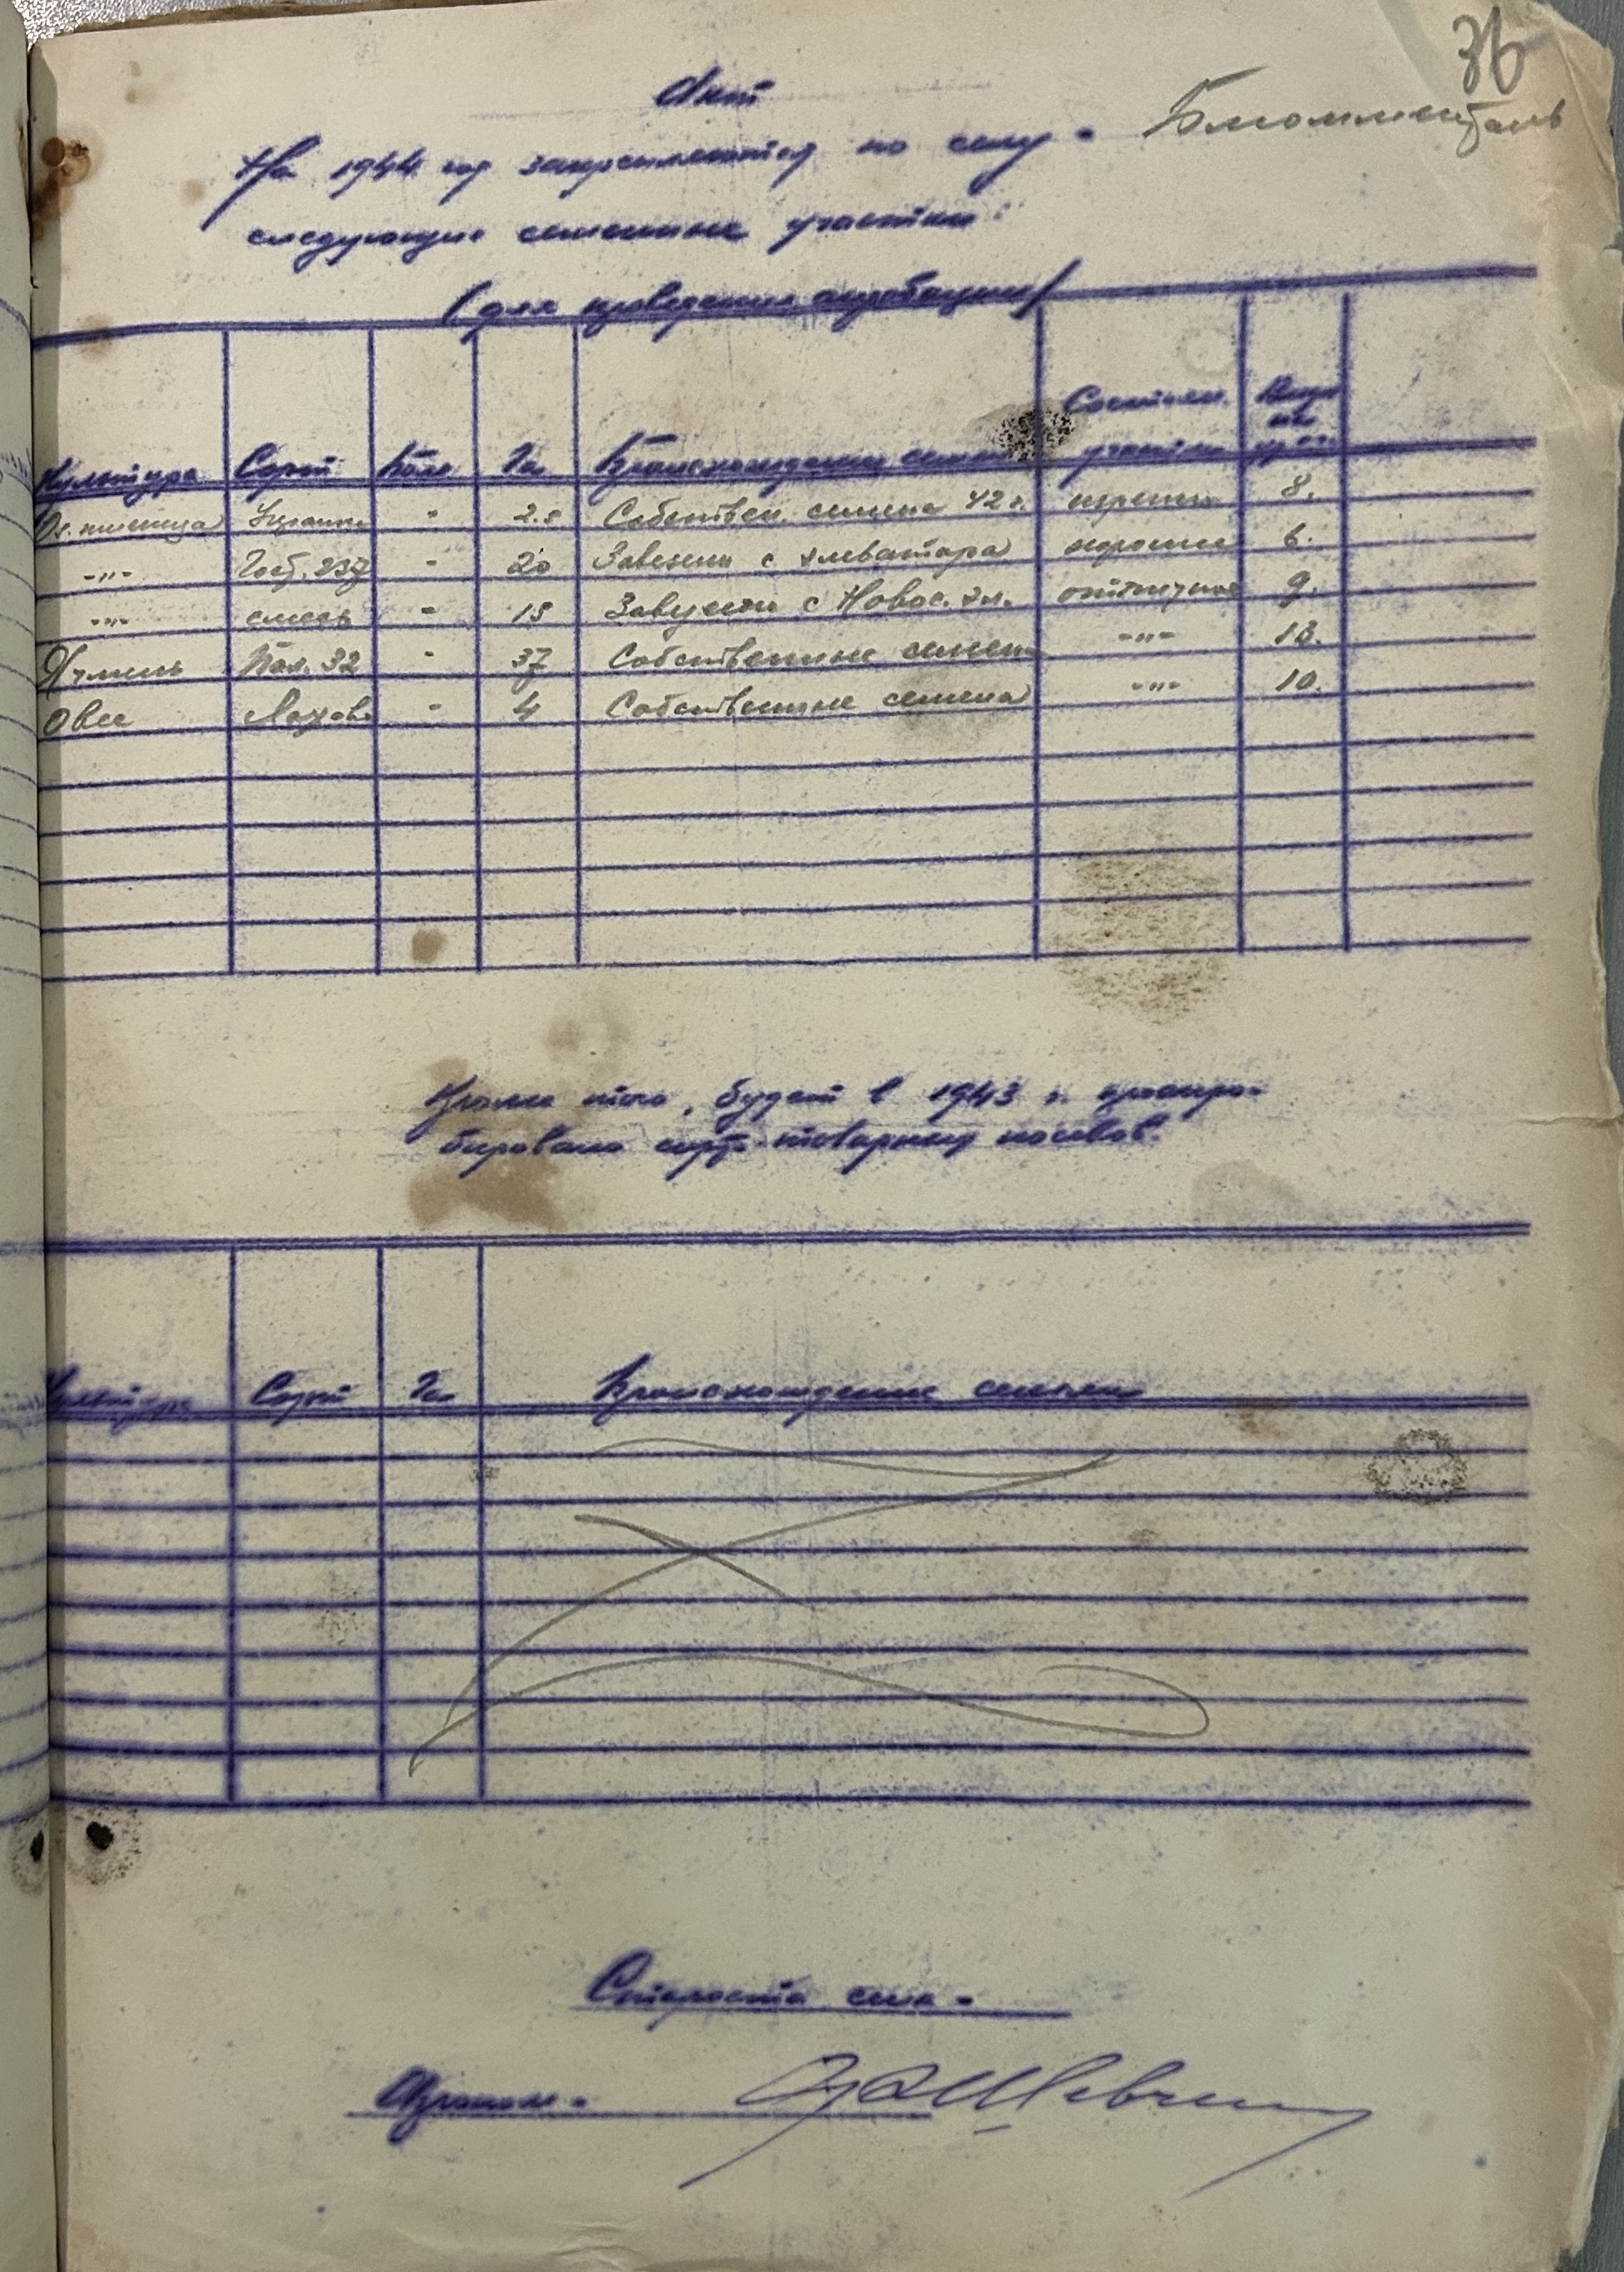 36
Акт
Блюменталь
На 1944 год закрепляются по селу -
следующие семенные участки:
(для проведения апробации)
Культура Сорт Поле Га Происхождение семян Состоян. участка Виды на урож.
Оз. пшеница Украинк " 2.5 Собствен. семена 42 г. 8.
-"- Гост. 237 " 20 Завезены с элеватора хорошее 6.
-"- смесь " 15 с Новос. эл. отличное 9.
Ячмень Пал. 32 " 37 Собственные семена -"- 13.
Овес Лохов. " 4 Собственные семена -"- 10.
Кроме того, будет в 1943 г. проапро-
бировано сорто-товарных посевов.
Культура Сорт Га Происхождение семян
Староста села -
Агроном -